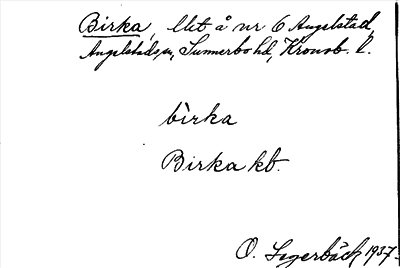 Birka, lht å nr 6 Angelstad,
Angelstads sn, Sunnerbo hd, Kronob. l.
bìrka
Birka kb.
O. Segerbäck 1937.